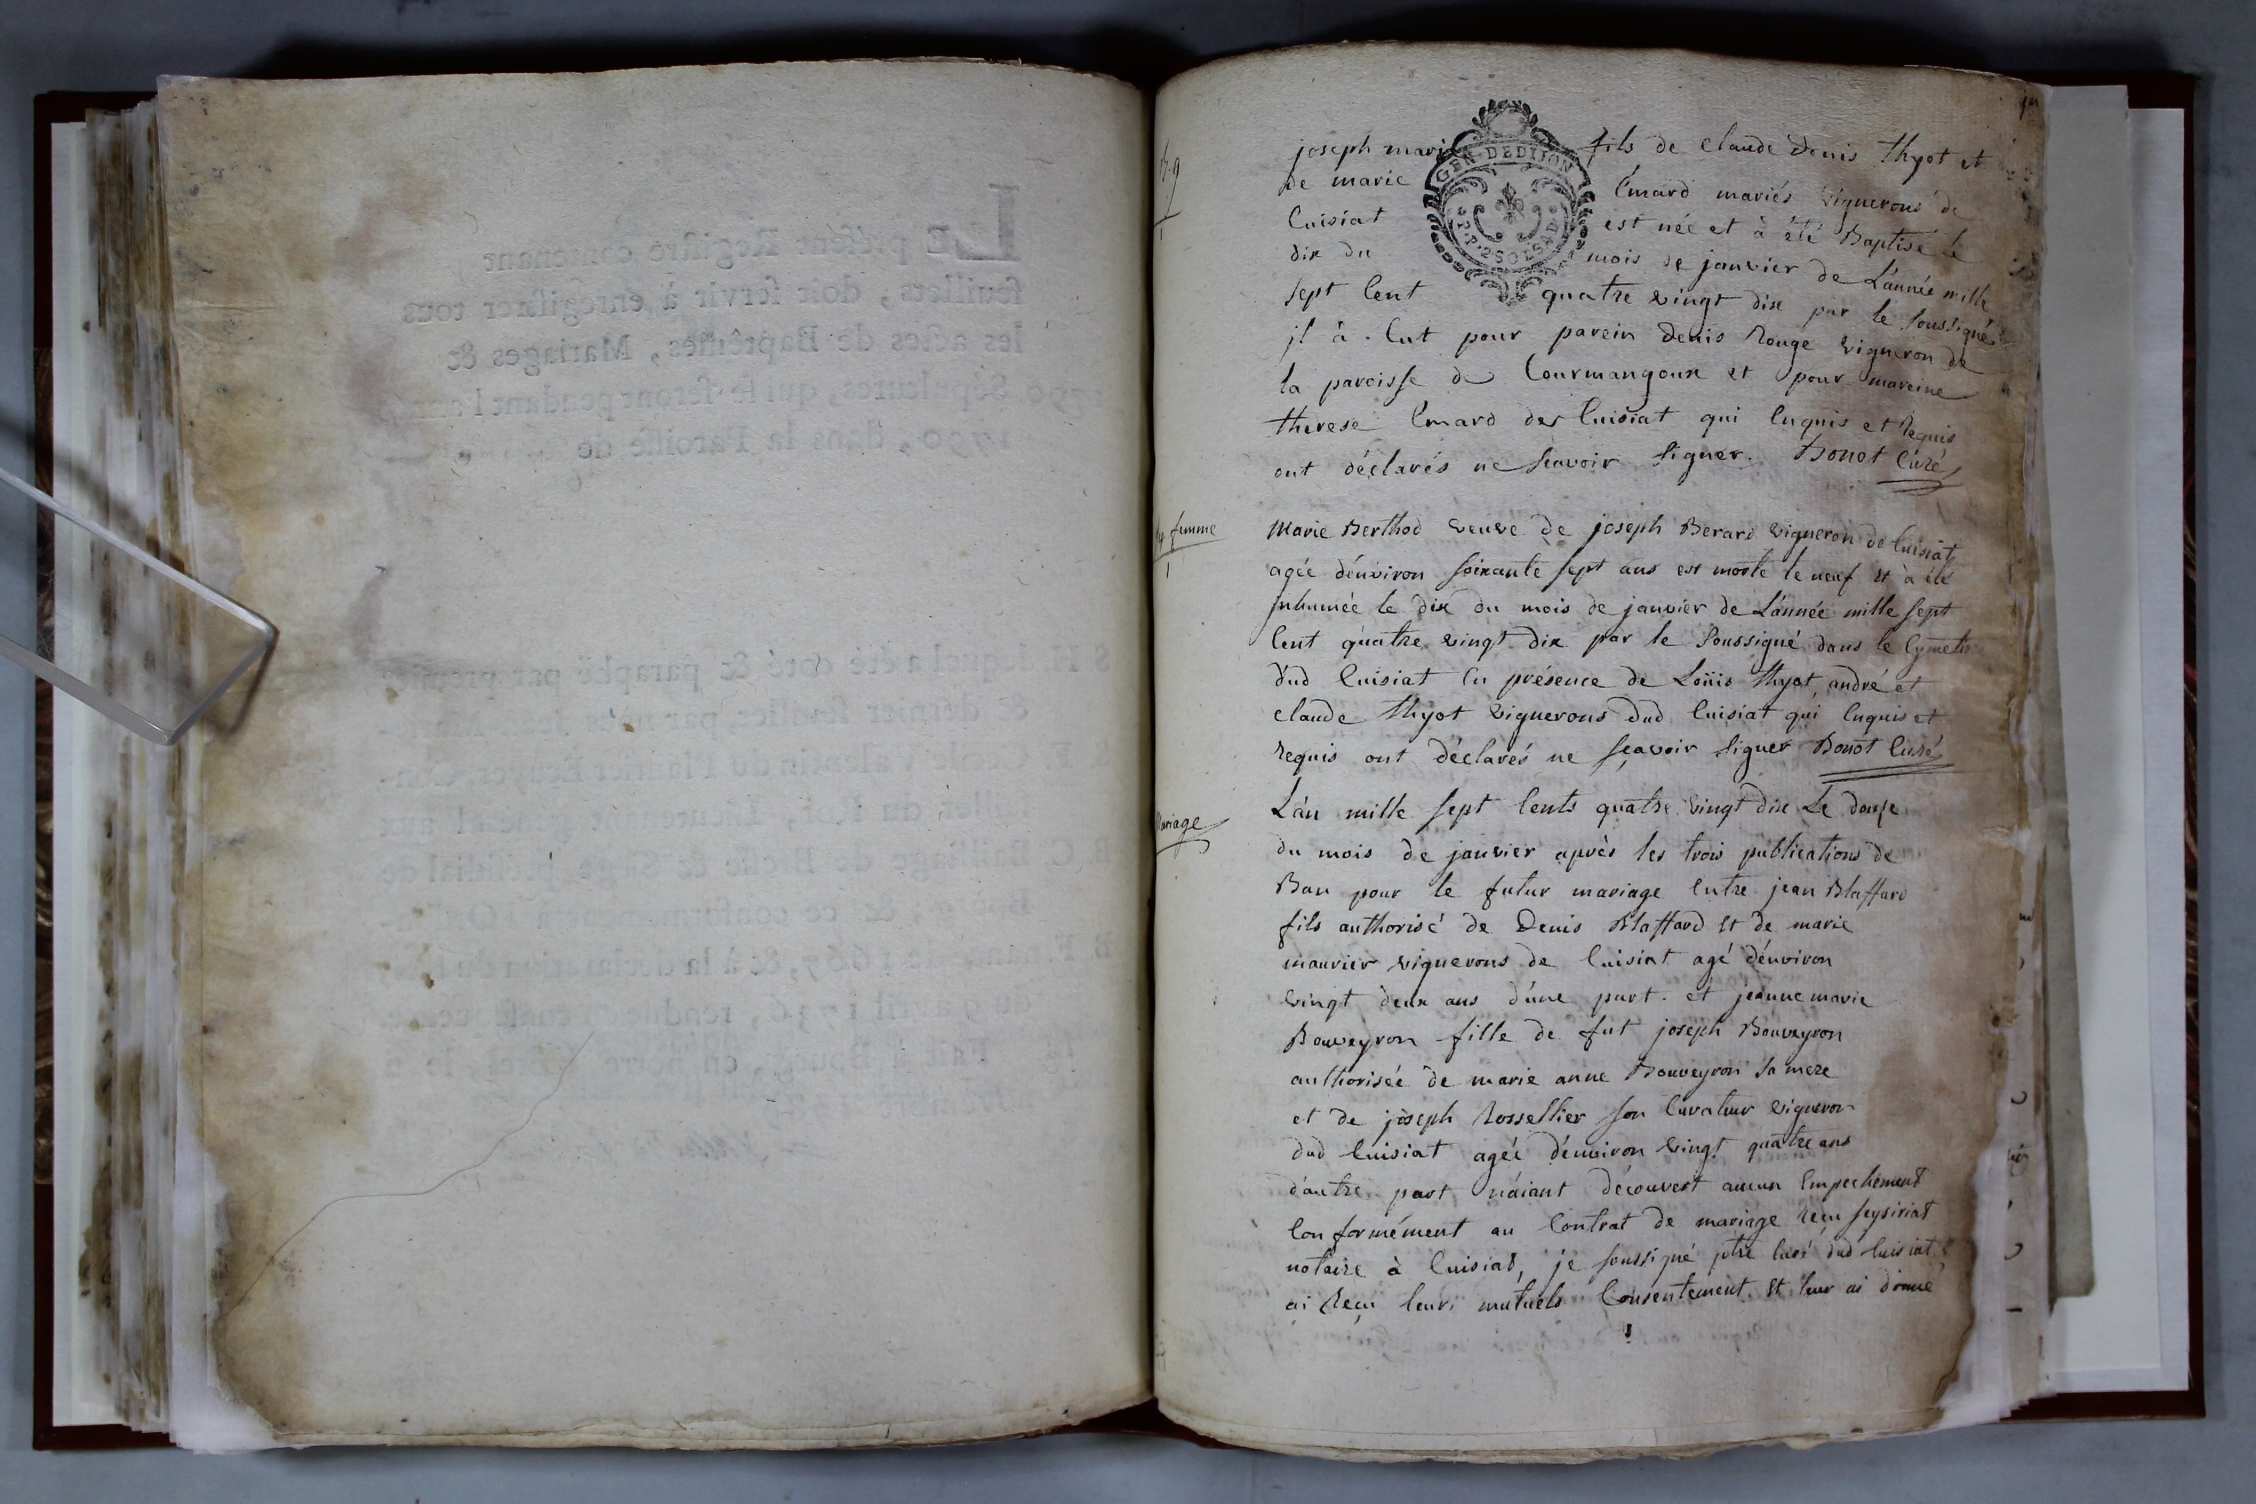 B. g
joseph marie fils de claude Denis thyot et
de marie Émard mariés vignerons de
Cuisiat est née et à été Baptisé le
dix du mois de janvier de L'année mille
sept Cent quatre vingt dix par le soussigné
jl à Eut pour parein Denis Rouge vigneron de
la paroisse de Courmangoux et pour mareine
therese Emard de Cuisiat qui Enquis et Requis
ont déclarés ne sçavoir signer. Bonot Curé
GEN. DE DIJON
P.P. 2 SOLS 4 D
femme
Marie Berthod veuve de joseph Berard vigneron de Cuisiat
agée d'environ soixante sept ans est morte le neuf et à été
jnhumée le dix du mois de janvier de L'année mille sept
Cent quatre vingt dix par le soussigné dans le Cymetie
dud Cuisiat En présence de Loüis thyot, andré et
claude thyot vignerons dud Cuisiat qui Enquis et
requis ont déclarés ne sçavoir signer Bonot Curé
Mariage
L'an mille sept Cents quatre vingt dix Le douze
du mois de janvier après les trois publications de
Ban pour le futur mariage Entre jean Blaffard
fils authorisé de Denis Blaffard et de marie
maurier vignerons de Cuisiat agé d'environ
vingt deux ans d'une part. et jeanne marie
Bouveyron fille de fut joseph Bouveyron
authorisée de marie anne Bouveyron sa mere
et de joseph Rossellier son Curateur vigneron
dud Cuisiat agée d'environ vingt quatre ans
d'autre part n'aiant découvert aucun Empechement
Conformément au Contrat de mariage reçu seysiriat
notaire à Cuisiat, je soussigné ptre Curé dud Cuisiat
ai Reçu leurs mutuels Consentement et leur ai donné